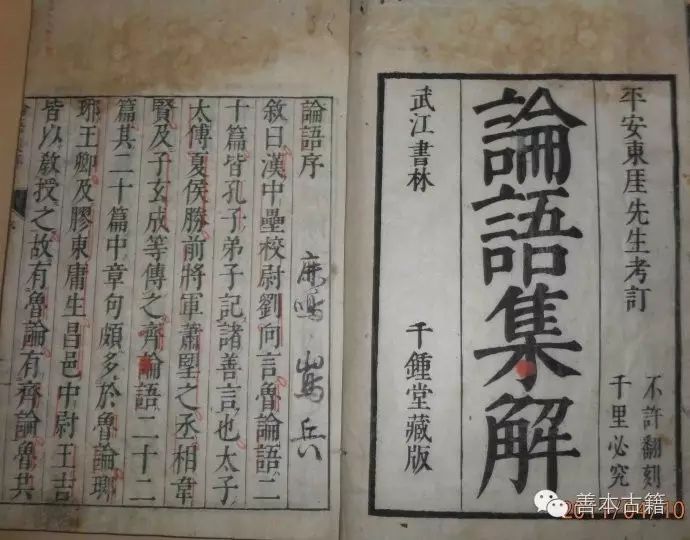 平安東厓先生考訂
不許翻刻
千里必究
論語集解
武江書林
千鍾堂藏版
論語序
敘曰漢中壘校尉劉向言魯論語二
十篇皆孔子弟子記諸善言也太子
太傅夏侯勝前將軍蕭朢之丞相韋
賢及子玄成等傳之齊論語二十二
篇其二十篇中章句頗多於魯論瑯
琊王卿及膠東庸生昌邑中尉王吉
皆以敎授之故有魯論有齊論魯共
善本古籍